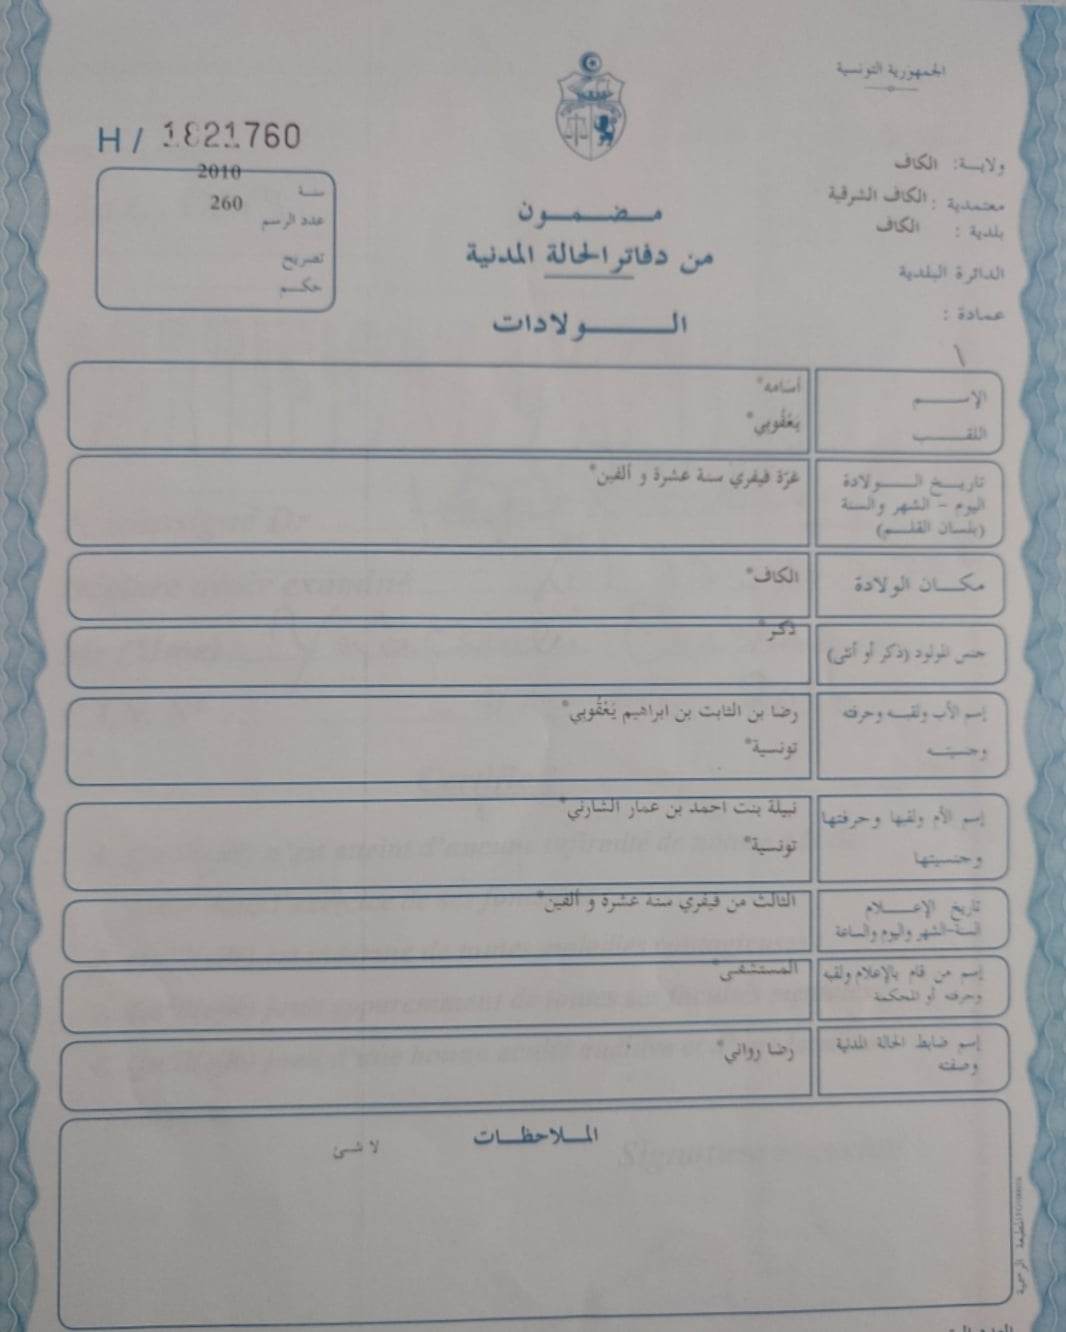 الجمهورية التونسية
H / 1821760
ولاية: الكاف
معتمدية : الكاف الشرقية
بلدية : الكاف
الدائرة البلدية
عمادة :
سنة 2010
عدد الرسم 260
تصريح
حكم
مضمون
من دفاتر الحالة المدنية
الولادات
الإسم
أسامه*
اللقب
يَعْقُوبي*
تاريخ الولادة
اليوم - الشهر والسنة
(بلسان القلم)
غرّة فيفري سنة عشرة و ألفين*
مكان الولادة
الكاف*
جنس المولود (ذكر أو أنثى)
ذكر*
إسم الأب ولقبه وحرفته
وجنسيته
رضا بن الثابت بن ابراهيم يَعْقُوبي*
تونسية*
إسم الأم ولقبها وحرفتها
وجنسيتها
نبيلة بنت احمد بن عمار الشارني*
تونسية*
تاريخ الإعلام
السنة-الشهر واليوم والساعة
الثالث من فيفري سنة عشرة و ألفين*
إسم من قام بالإعلام ولقبه
وحرفته أو المحكمة
المستشفى*
إسم ضابط الحالة المدنية
وصفته
رضا رواني*
الملاحظات
لا شئ
المطبعة الرسمية